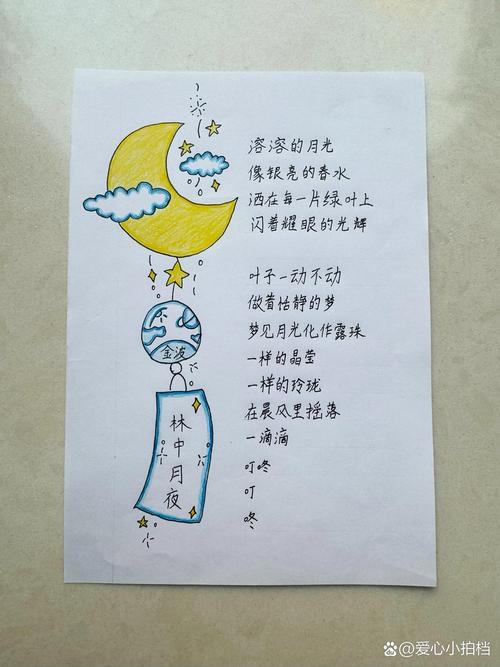 溶溶的月光
像银亮的春水
洒在每一片绿叶上
闪着耀眼的光辉
叶子一动不动
做着恬静的梦
梦见月光化作露珠
一样的晶莹
一样的玲珑
在晨风里摇落
一滴滴
叮咚
叮
咚
金波
林中月夜
爱心小拍档